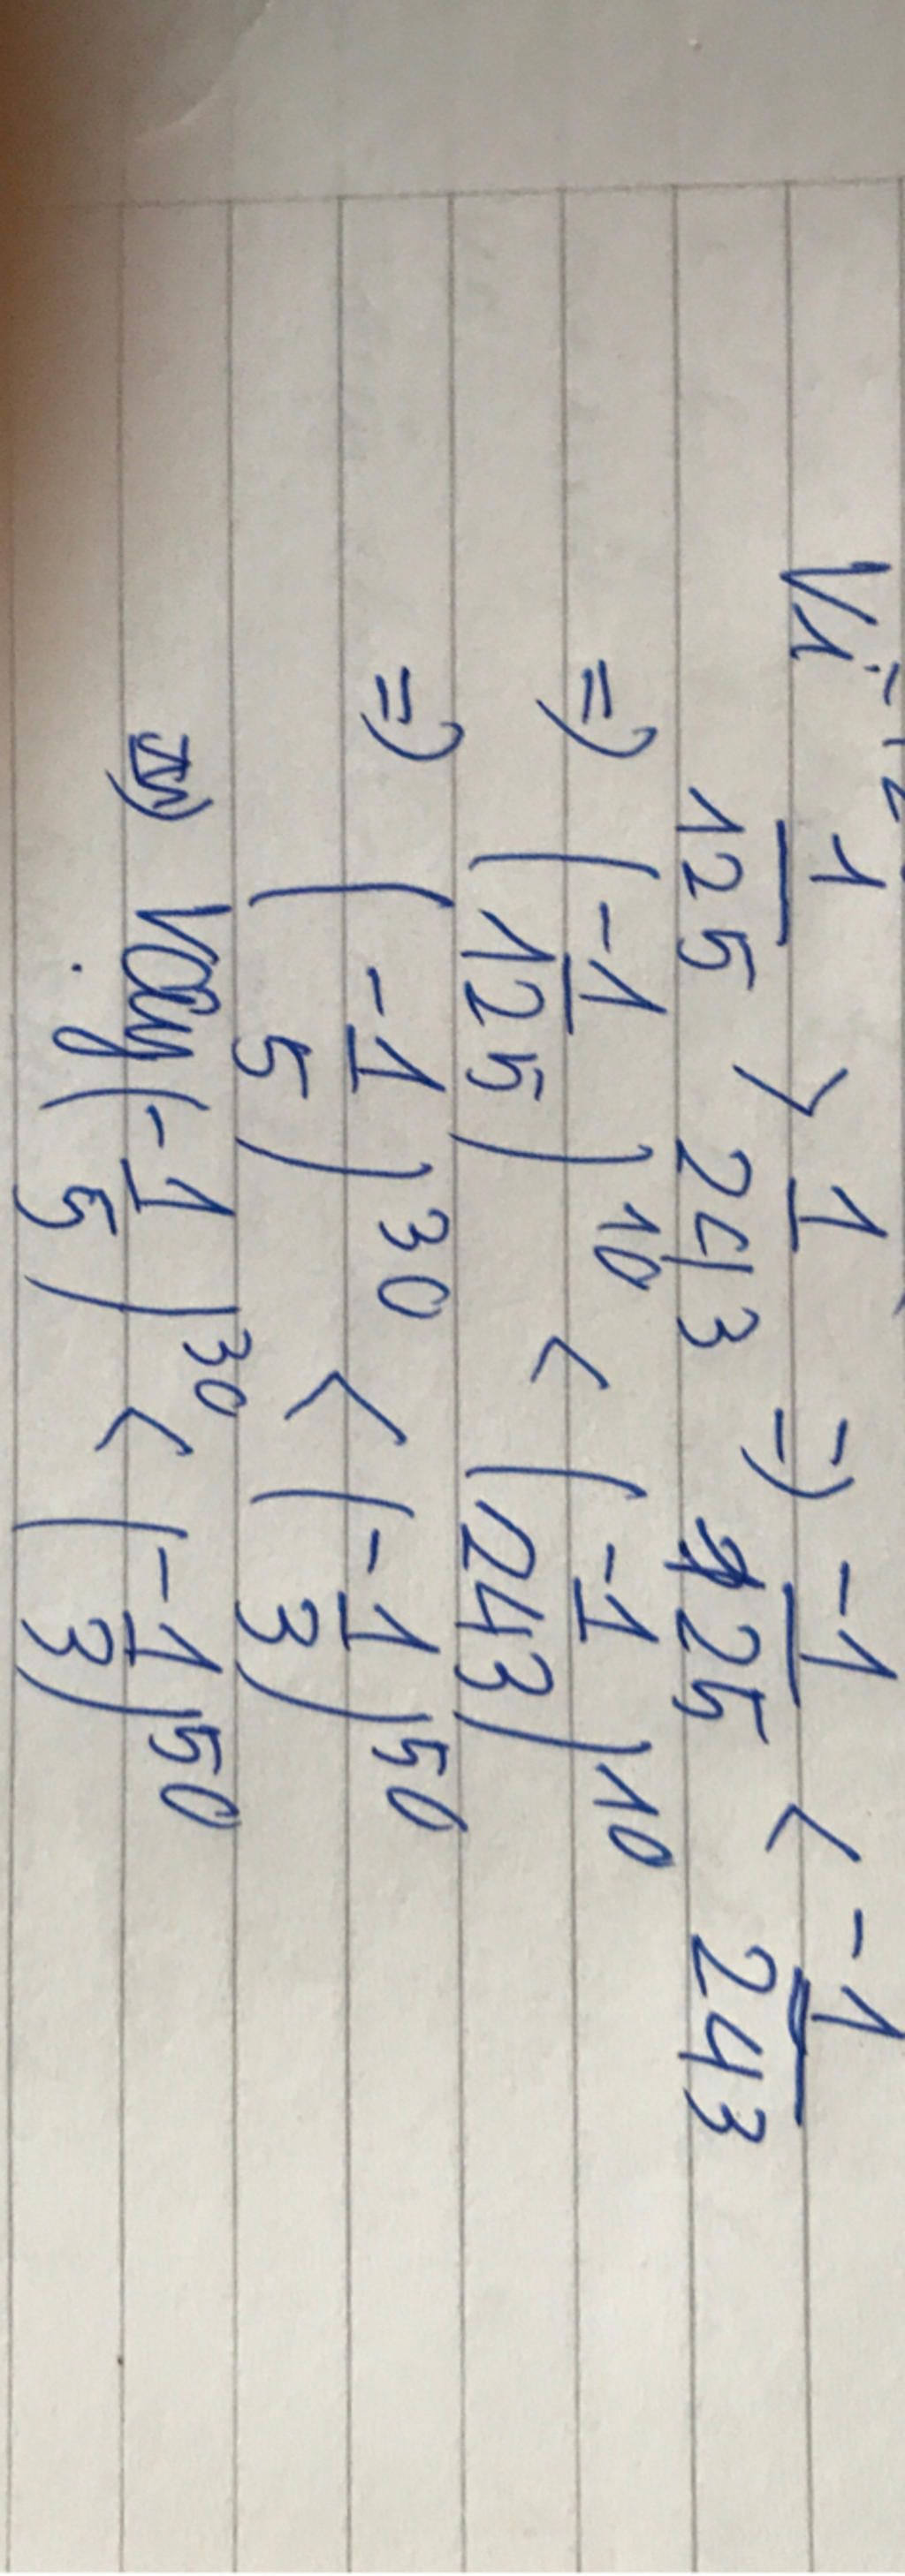 Vì 1/125 > 1/243 => -1/125 < -1/243
=> (-1/125)^10 < (-1/243)^10
=> (-1/5)^30 < (-1/3)^50
Vậy (-1/5)^30 < (-1/3)^50